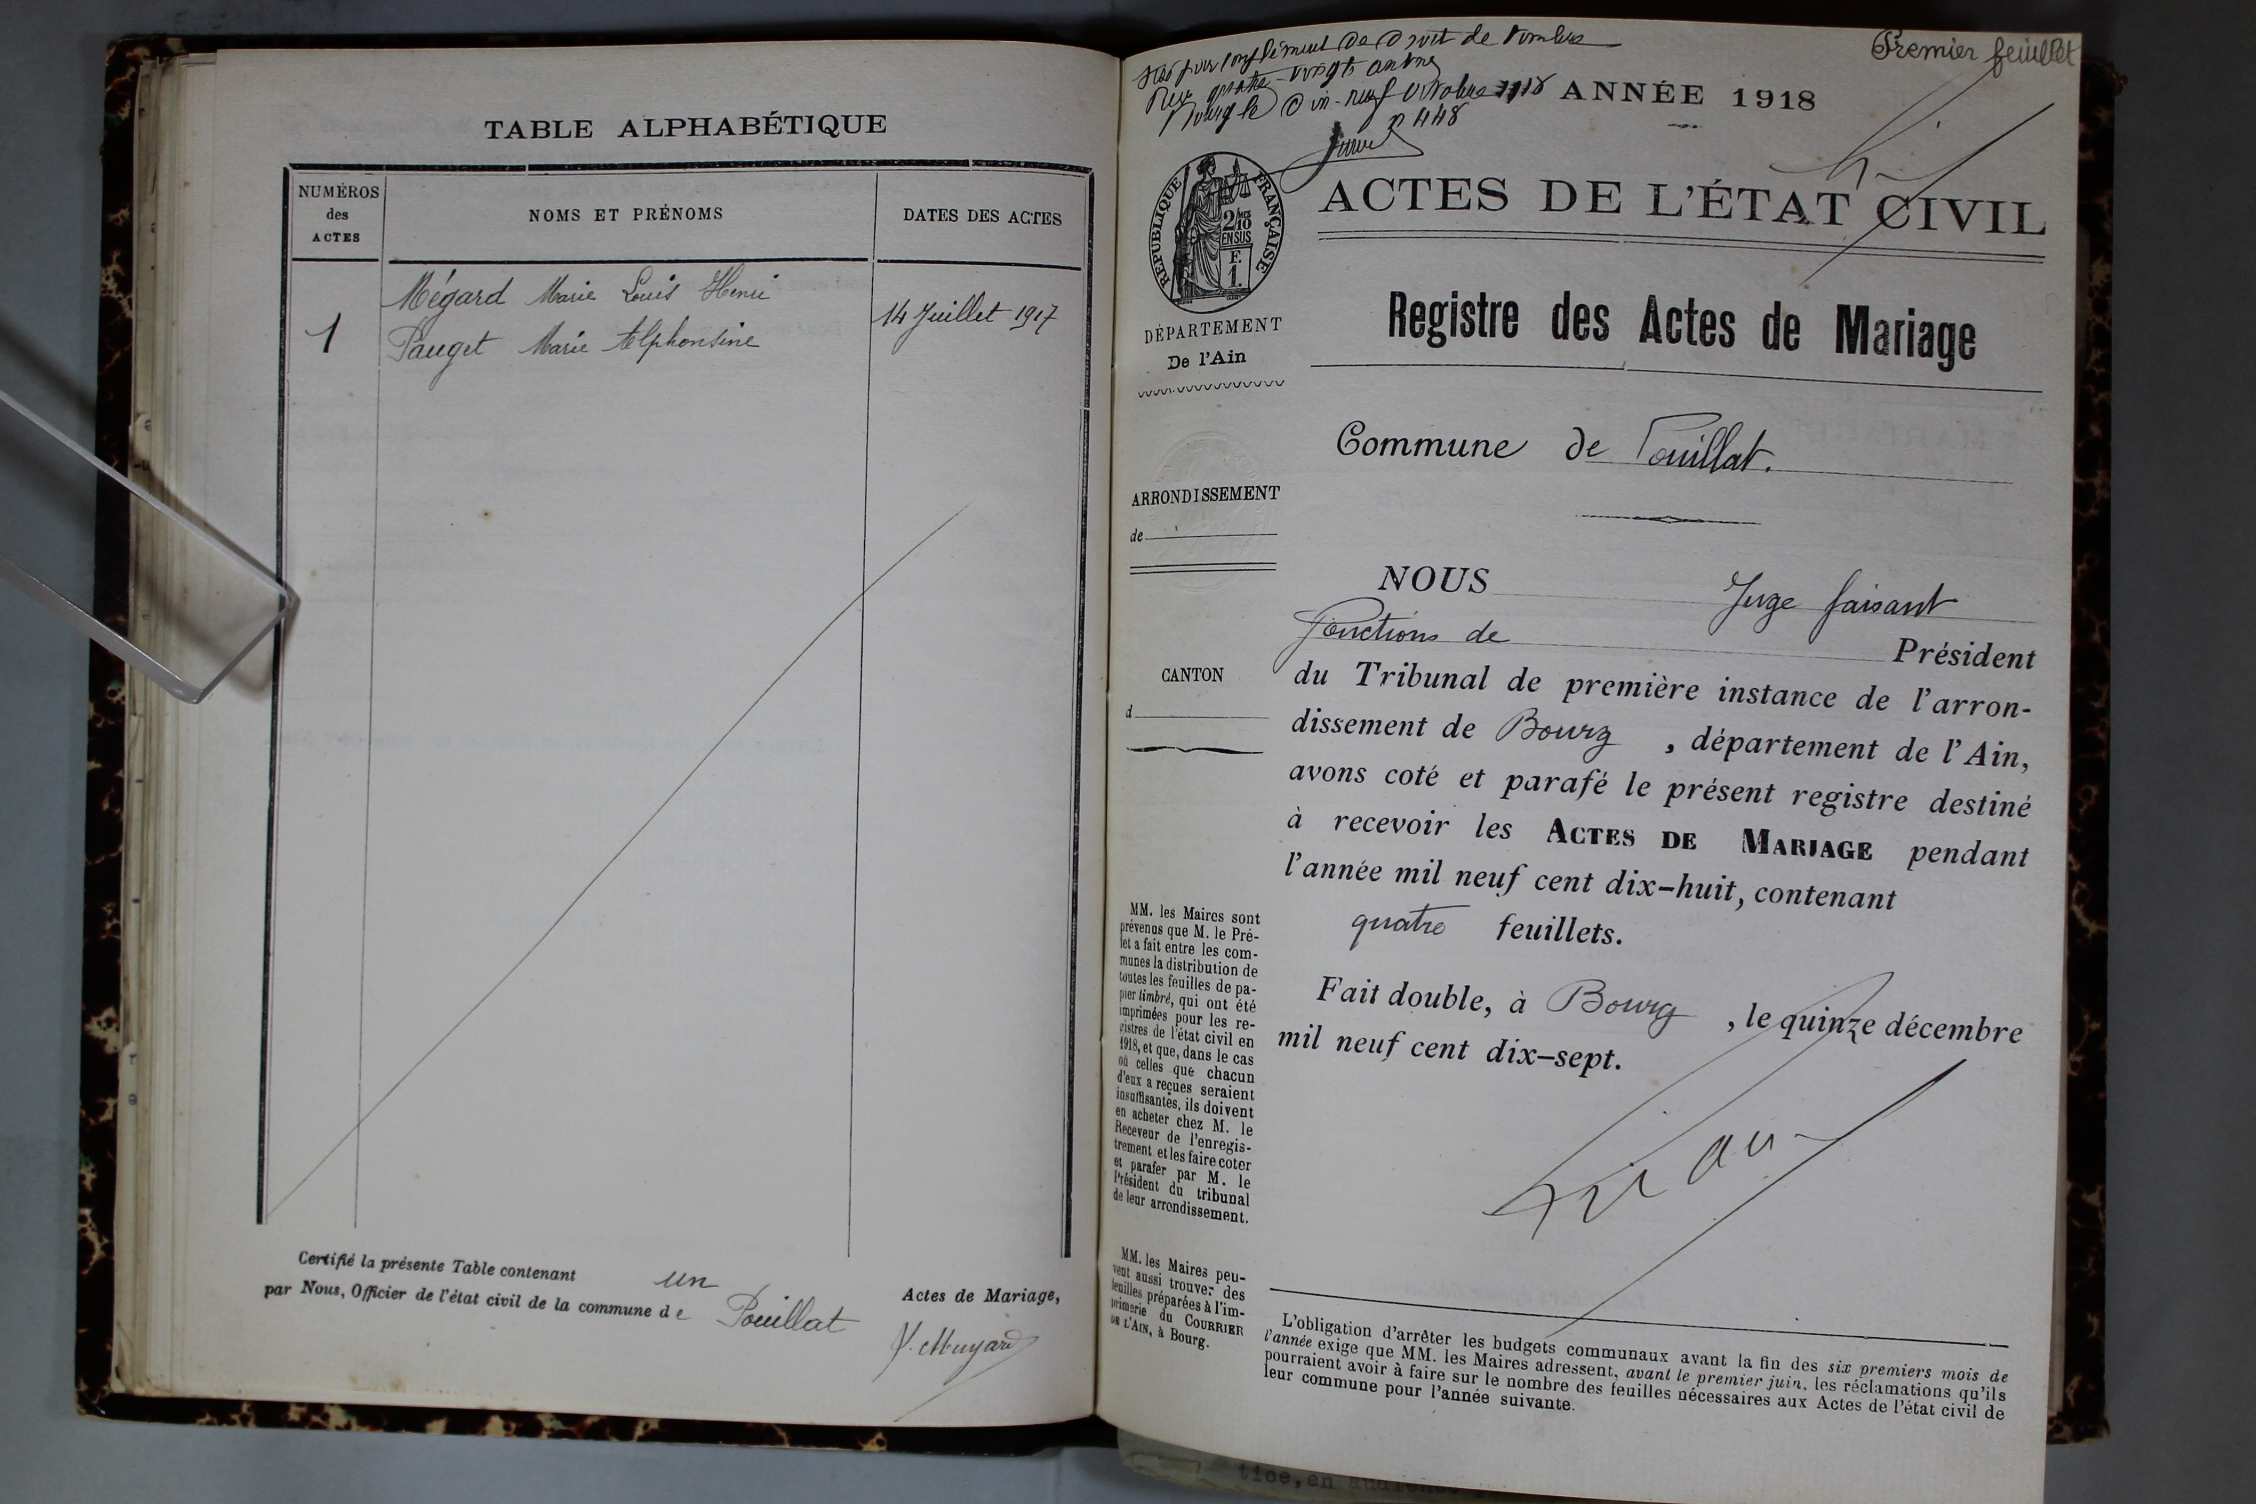 TABLE ALPHABÉTIQUE
NUMÉROS
des
ACTES
NOMS ET PRÉNOMS
DATES DES ACTES
Mégard Marie Louis Henri
1
14 Juillet 1917
Pauget Marie Alphonsine
Certifié la présente Table contenant un Actes de Mariage,
par Nous, Officier de l'état civil de la commune de Pouillat
Premier feuillet
de Droit de
quatre-vingt
Bourg le dix-neuf 1918
n 448
ANNÉE 1918
RÉPUBLIQUE FRANÇAISE
2/10
EN SUS
F.
1.
ACTES DE L'ÉTAT CIVIL
DÉPARTEMENT
De l'Ain
Registre des Actes de Mariage
Commune de Pouillat.
ARRONDISSEMENT
de
CANTON
d
NOUS Juge faisant
Fonctions de Président
du Tribunal de première instance de l'arron-
dissement de Bourg, département de l'Ain,
avons coté et parafé le présent registre destiné
à recevoir les ACTES DE MARIAGE pendant
l'année mil neuf cent dix-huit, contenant
quatre feuillets.
Fait double, à Bourg, le quinze décembre
mil neuf cent dix-sept.
MM. les Maires sont
prévenus que M. le Pré-
fet a fait entre les com-
munes la distribution de
toutes les feuilles de pa-
pier timbré, qui ont été
imprimées pour les re-
gistres de l'état civil en
1918, et que, dans le cas
où celles que chacun
d'eux a reçues seraient
insuffisantes, ils doivent
en acheter chez M. le
Receveur de l'enregis-
trement et les faire coter
et parafer par M. le
Président du tribunal
de leur arrondissement.
MM. les Maires peu-
vent aussi trouver des
feuilles préparées à l'im-
primerie du COURRIER
DE L'AIN, à Bourg.
L'obligation d'arrêter les budgets communaux avant la fin des six premiers mois de
l'année exige que MM. les Maires adressent, avant le premier juin, les réclamations qu'ils
pourraient avoir à faire sur le nombre des feuilles nécessaires aux Actes de l'état civil de
leur commune pour l'année suivante.